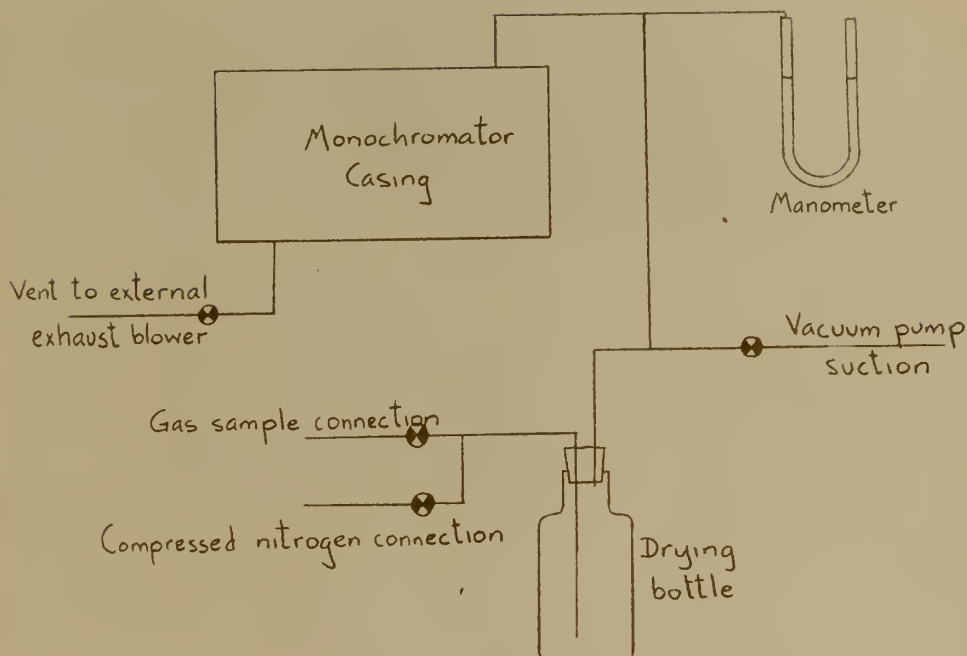 Monochromator
Casing
Manometer
Vent to external
exhaust blower
Vacuum pump
suction
Gas sample connection
Compressed nitrogen connection
Drying
bottle